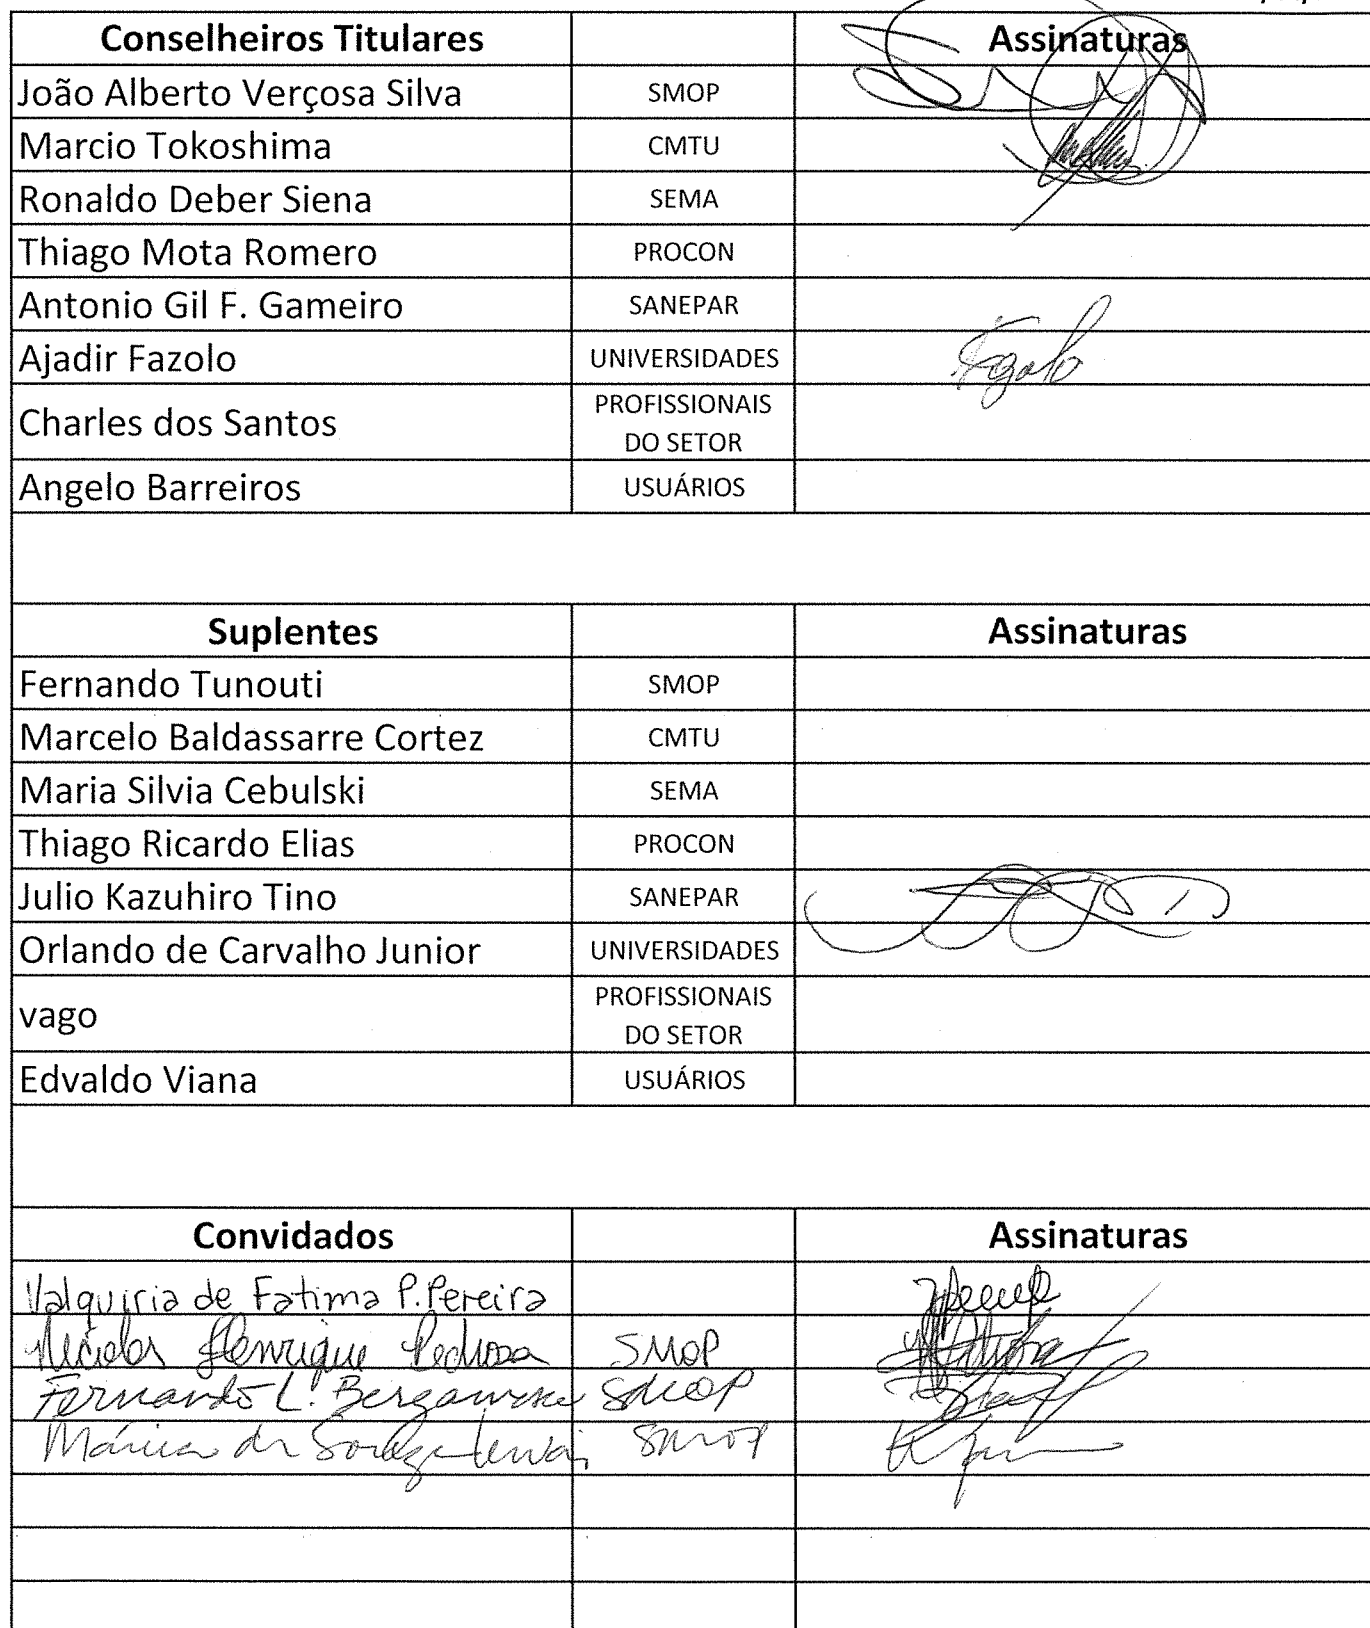 Conselheiros Titulares Assinaturas
João Alberto Verçosa Silva SMOP
Marcio Tokoshima CMTU
Ronaldo Deber Siena SEMA
Thiago Mota Romero PROCON
Antonio Gil F. Gameiro SANEPAR
Ajadir Fazolo UNIVERSIDADES
Charles dos Santos PROFISSIONAIS
DO SETOR
Angelo Barreiros USUÁRIOS
Suplentes Assinaturas
Fernando Tunouti SMOP
Marcelo Baldassarre Cortez CMTU
Maria Silvia Cebulski SEMA
Thiago Ricardo Elias PROCON
Julio Kazuhiro Tino SANEPAR
Orlando de Carvalho Junior UNIVERSIDADES
vago PROFISSIONAIS
DO SETOR
Edvaldo Viana USUÁRIOS
Convidados Assinaturas
Valquiria de Fatima P. Pereira
Henrique Pedrosa SMOP
Fernando L. SMOP
de Souza SMOP